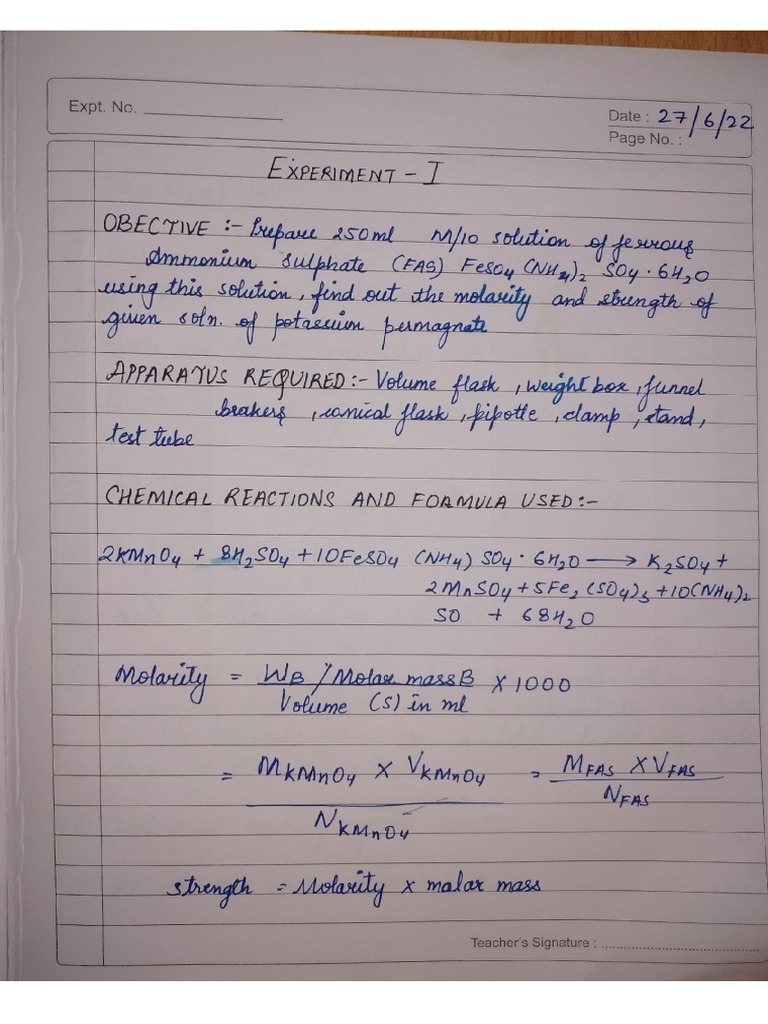 Expt. No.
Date : 27/6/22
Page No. :
EXPERIMENT - I
OBECTIVE :- Prepare 250ml M/10 solution of ferrous
Ammonium Sulphate (FAS) FeSO4 (NH4)2 SO4 · 6H2O
using this solution, find out the molarity and strength of
given soln. of potassium permagnate
APPARATUS REQUIRED :- Volume flask , weight box , funnel
brakers , conical flask , pipotte , clamp , stand ,
test tube
CHEMICAL REACTIONS AND FORMULA USED :-
2KMnO4 + 8H2SO4 + 10FeSO4 (NH4) SO4 · 6H2O → K2SO4 +
2MnSO4 + 5Fe2 (SO4)3 + 10(NH4)2
SO + 68H2O
Molarity = WB / Molar mass B × 1000
Volume (S) in ml
= MKMnO4 × VKMnO4 = MFAS × VFAS
NKMnO4 NFAS
strength = Molarity × malar mass
Teacher's Signature :